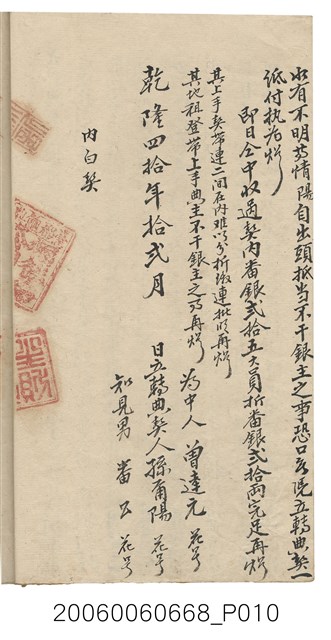 來有不明等情陽自出頭抵当不干銀主之事恐口無凭立轉典契一
紙付執為炤
即日仝中收過契內番銀弍拾五大員折番銀弍拾兩完足再炤
其上手契帶連二间在內难以分折繳連批明再炤
其地租登帶上手典主不干銀主之事再炤
為中人 曾達元 花号
乾隆四拾年拾弍月 日立轉典契人孫甫陽 花号
知見男 番 公 花号
內白契
20060060668_P010